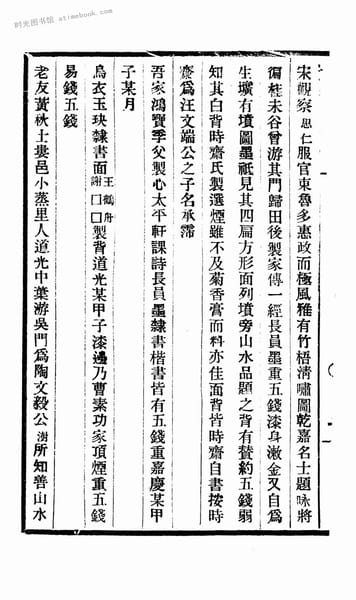 时光图书馆 atimebook.com
宋觀察思仁服官東魯多惠政而極風雅有竹梧清嘯圖乾嘉名士題咏將
徧桂未谷曾游其門歸田後製家傳一經長員墨重五錢漆身漱金又自爲
生壙有墳圖墨祇見其四扁方形面列墳旁山水品題之背有贊約五錢弱
知其白背時齋氏製選煙雖不及菊香膏而料亦佳面背皆時齋自書按時
齋爲汪文端公之子名承霈
吾家鴻寶季父製心太平軒課詩長員墨隸書楷書皆有五錢重嘉慶某甲
子某月
烏衣玉玦隸書面王鶴舟謝囗囗製背道光某甲子漆邊乃曹素功家頂煙重五錢
易錢五錢
老友黃秋士婁邑小蒸里人道光中葉游吳門爲陶文毅公澍所知善山水